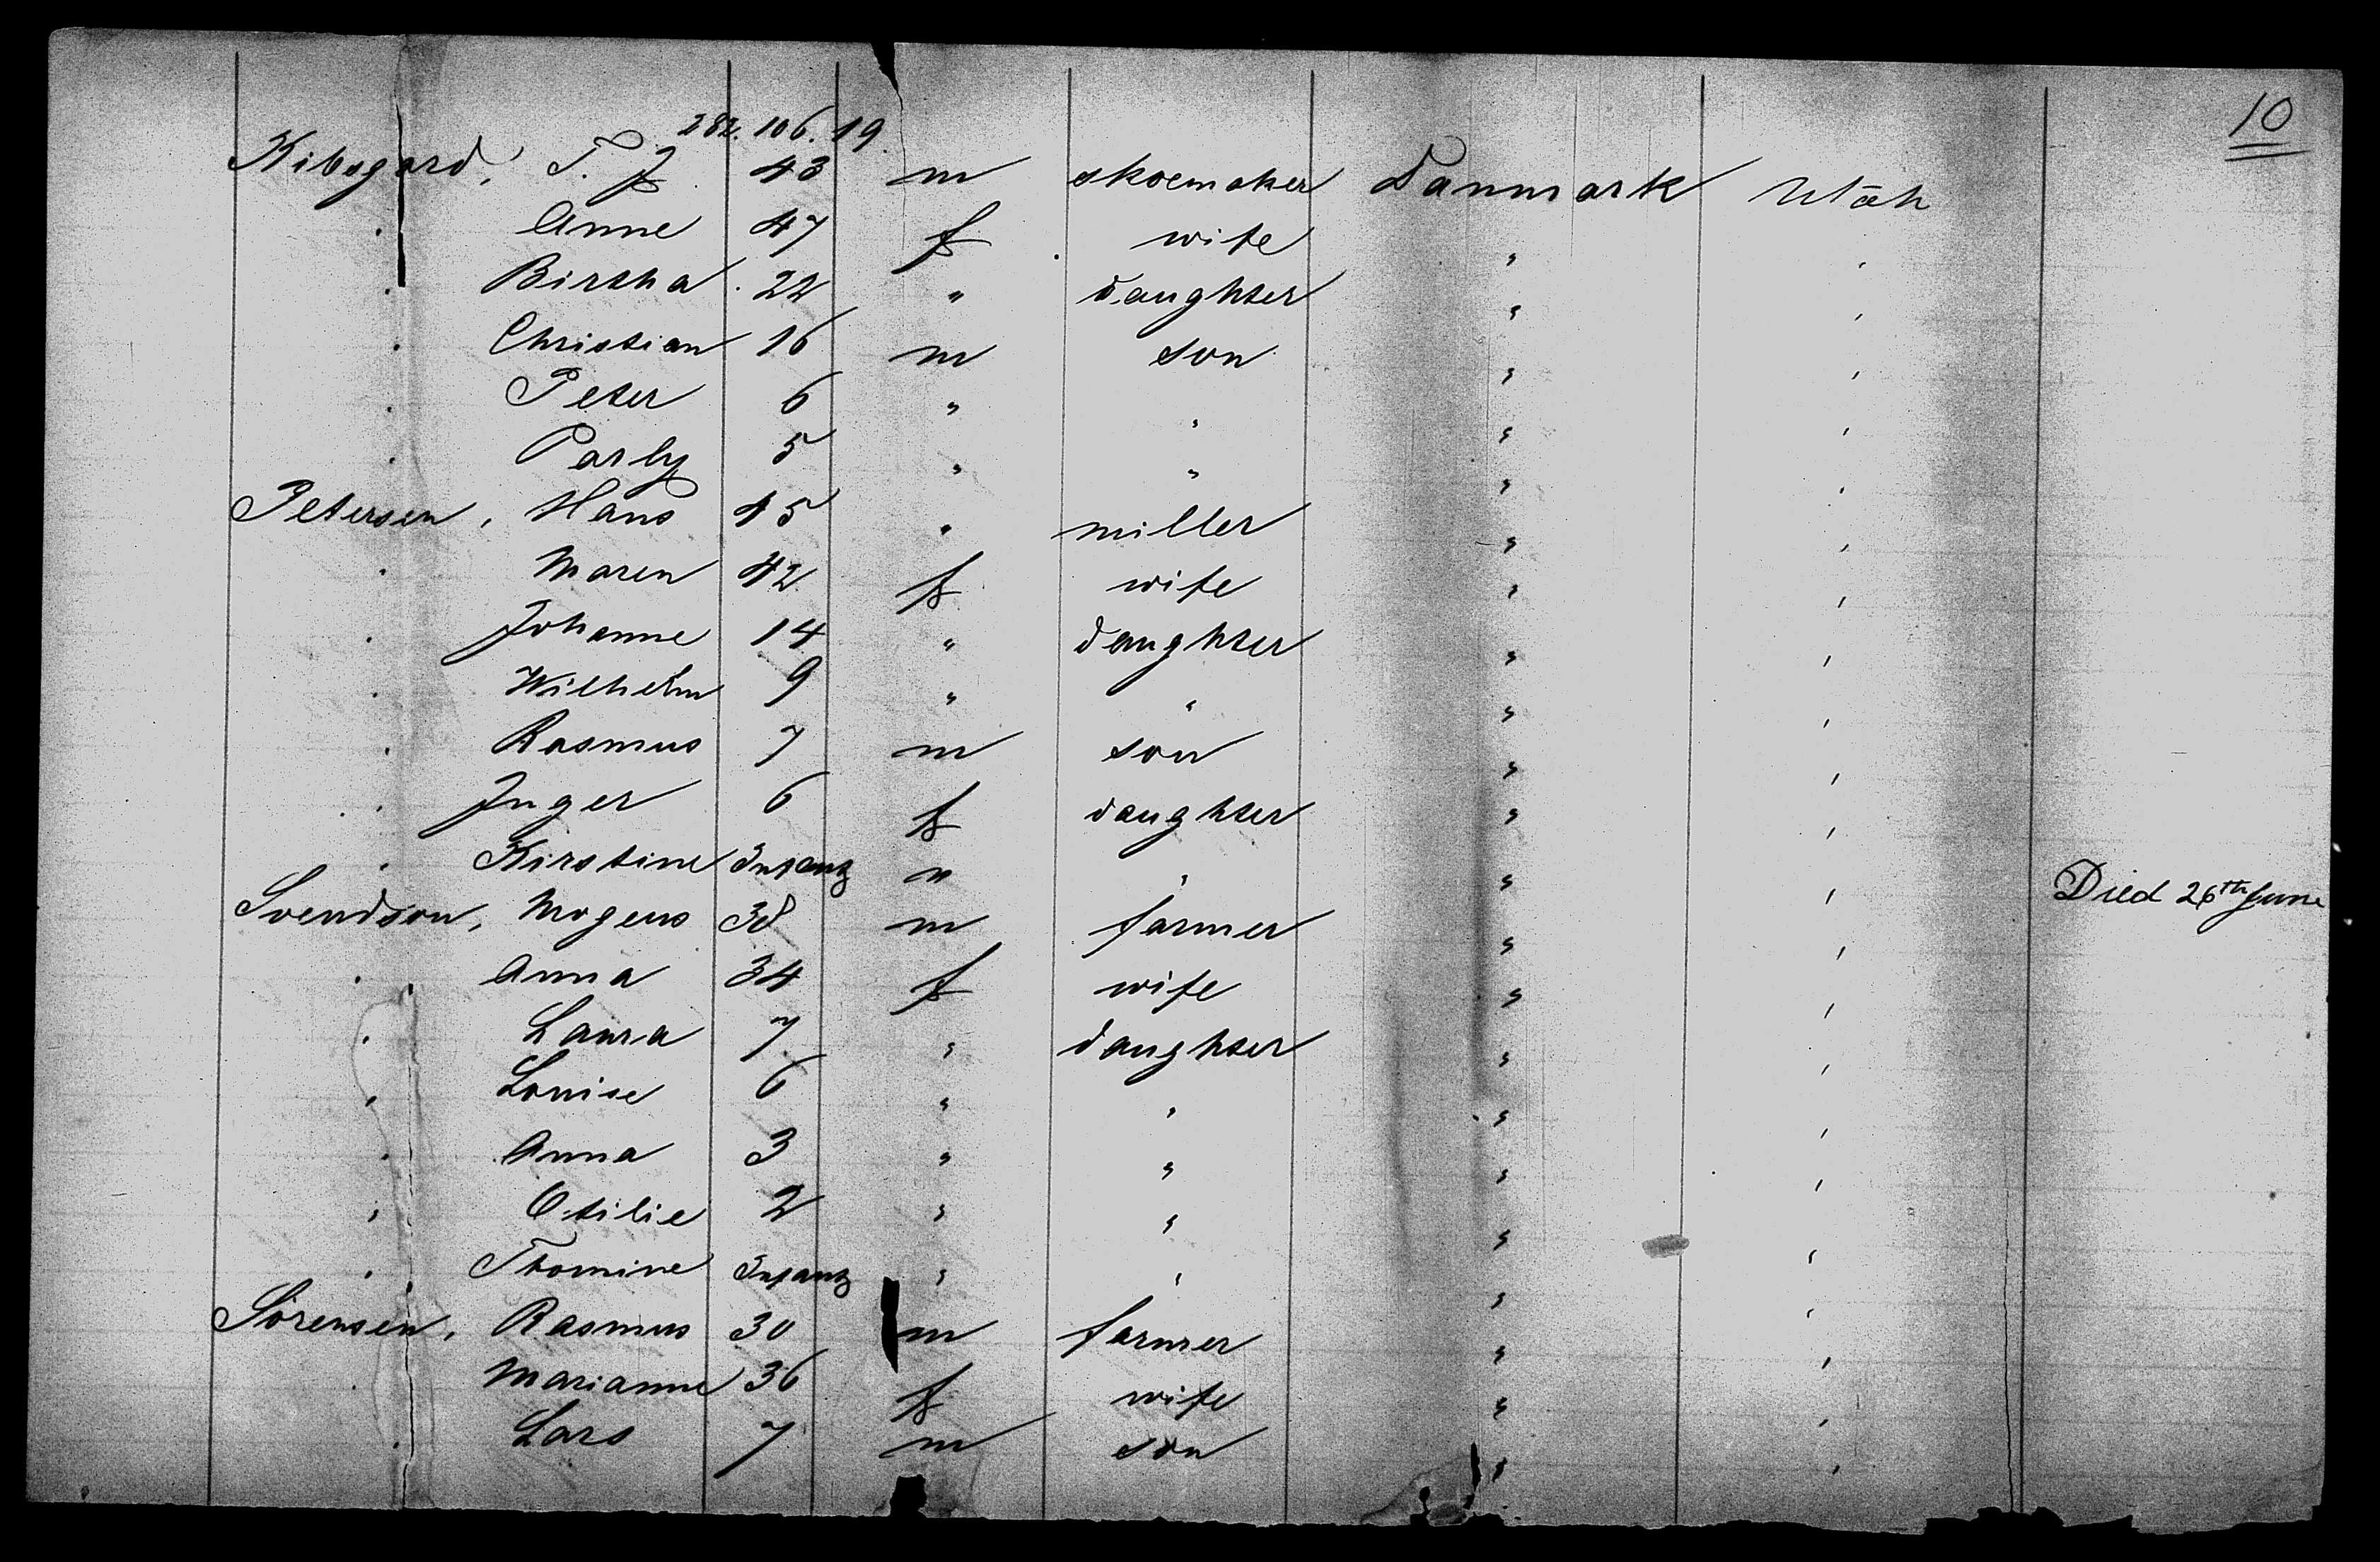 10
282. 106. 19.
Kibsgard, T. J. 43 m skoemaker Danmark Utah
" Anne 47 f wife " "
" Birtha 22 " daughter " "
" Christian 16 m son " "
" Peter 6 " " " "
" Parly 5 " " " "
Petersen, Hans 45 " miller " "
" Maren 42 f wife " "
" Johanne 14 " daughter " "
" Wilhelm 9 " " " "
" Rasmus 7 m son " "
" Inger 6 f daughter " "
" Kirstine Infant " " " " Died 26th June
Svendson, Mogens 38 m farmer " "
" Anna 34 f wife " "
" Laura 7 " daughter " "
" Louise 6 " " " "
" Anna 3 " " " "
" Otilie 2 " " " "
" Thomine Infant " " " "
Sörensen, Rasmus 30 m farmer " "
" Marianne 36 f wife " "
" Lars 7 m son " "